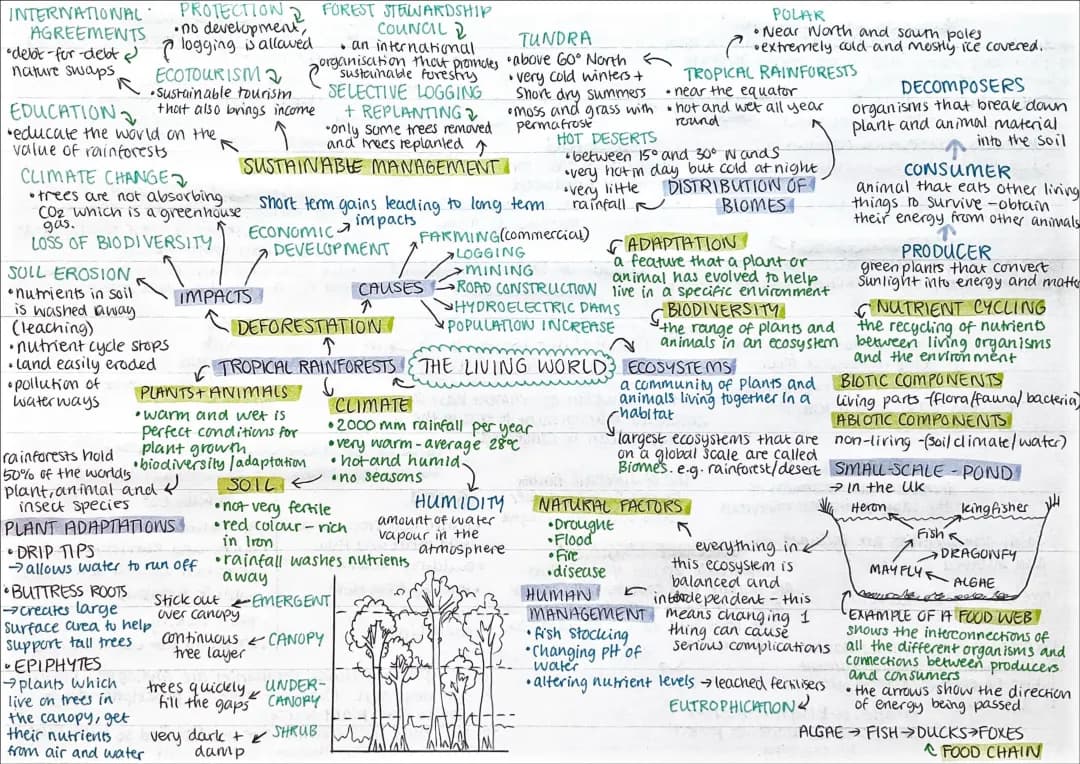 INTERNATIONAL
AGREEMENTS
•debt-for-debt
nature swaps
PROTECTION
•no development,
logging is allowed
ECOTOURISM
•sustainable tourism
that also brings income
FOREST STEWARDSHIP
COUNCIL
• an international
organisation that promotes
sustainable forestry
SELECTIVE LOGGING
+ REPLANTING
•only some trees removed
and trees replanted
EDUCATION
•educate the world on the
value of rainforests
SUSTAINABLE MANAGEMENT
TUNDRA
•above 60° North
•very cold winters +
short dry summers
•moss and grass with
permafrost
POLAR
• Near North and south poles
•extremely cold and mostly ice covered.
TROPICAL RAINFORESTS
•near the equator
• hot and wet all year
round
HOT DESERTS
•between 15° and 30° N and S
•very hot in day but cold at night
•very little
rainfall
DISTRIBUTION OF
BIOMES
DECOMPOSERS
organisms that break down
plant and animal material
into the soil
CONSUMER
animal that eats other living
things to survive -obtain
their energy from other animals
PRODUCER
green plants that convert
sunlight into energy and matter
CLIMATE CHANGE
• trees are not absorbing
CO2 which is a greenhouse
gas.
LOSS OF BIODIVERSITY
SOIL EROSION
•nutrients in soil
is washed away
(leaching)
•nutrient cycle stops
•land easily eroded
•pollution of
waterways
IMPACTS
Short term gains leading to long term
impacts
ECONOMIC
DEVELOPMENT
CAUSES
FARMING (commercial)
LOGGING
MINING
ROAD CONSTRUCTION
HYDROELECTRIC DAMS
POPULATION INCREASE
DEFORESTATION
TROPICAL RAINFORESTS
THE LIVING WORLD
ECOSYSTEMS
a community of plants and
animals living together in a
habitat
largest ecosystems that are
on a global scale are called
Biomes. e.g. rainforest/desert
ADAPTATION
a feature that a plant or
animal has evolved to help
live in a specific environment
BIODIVERSITY
the range of plants and
animals in an ecosystem
NUTRIENT CYCLING
the recycling of nutrients
between living organisms
and the environment
BIOTIC COMPONENTS
living parts -(flora/fauna/bacteria)
ABIOTIC COMPONENTS
non-living -(soil/climate/water)
SMALL-SCALE - POND
→ in the UK
Heron
kingfisher
Fish
DRAGONFY
MAYFLY
ALGAE
EXAMPLE OF A FOOD WEB
shows the interconnections of
all the different organisms and
connections between producers
and consumers
• the arrows show the direction
of energy being passed
ALGAE → FISH → DUCKS → FOXES
FOOD CHAIN
PLANTS + ANIMALS
•warm and wet is
perfect conditions for
plant growth
•biodiversity/adaptation
rainforests hold
50% of the worlds
plant, animal and
insect species
CLIMATE
•2000 mm rainfall per year
•very warm - average 28°C
• hot and humid
•no seasons
HUMIDITY
amount of water
vapour in the
atmosphere
SOIL
•not very fertile
•red colour - rich
in Iron
•rainfall washes nutrients
away
PLANT ADAPTATIONS
• DRIP TIPS
→allows water to run off
•BUTTRESS ROOTS
→creates large
surface area to help
support tall trees
• EPIPHYTES
→plants which
live on trees in
the canopy, get
their nutrients
from air and water
stick out
over canopy
EMERGENT
continuous
tree layer
CANOPY
trees quickly
fill the gaps
UNDER-
CANOPY
very dark +
damp
SHRUB
NATURAL FACTORS
•Drought
•Flood
•Fire
•disease
HUMAN
MANAGEMENT
• fish stocking
•changing pH of
water
•altering nutrient levels → leached fertilisers
EUTROPHICATION
everything in
this ecosystem is
balanced and
interdependent - this
means changing 1
thing can cause
serious complications